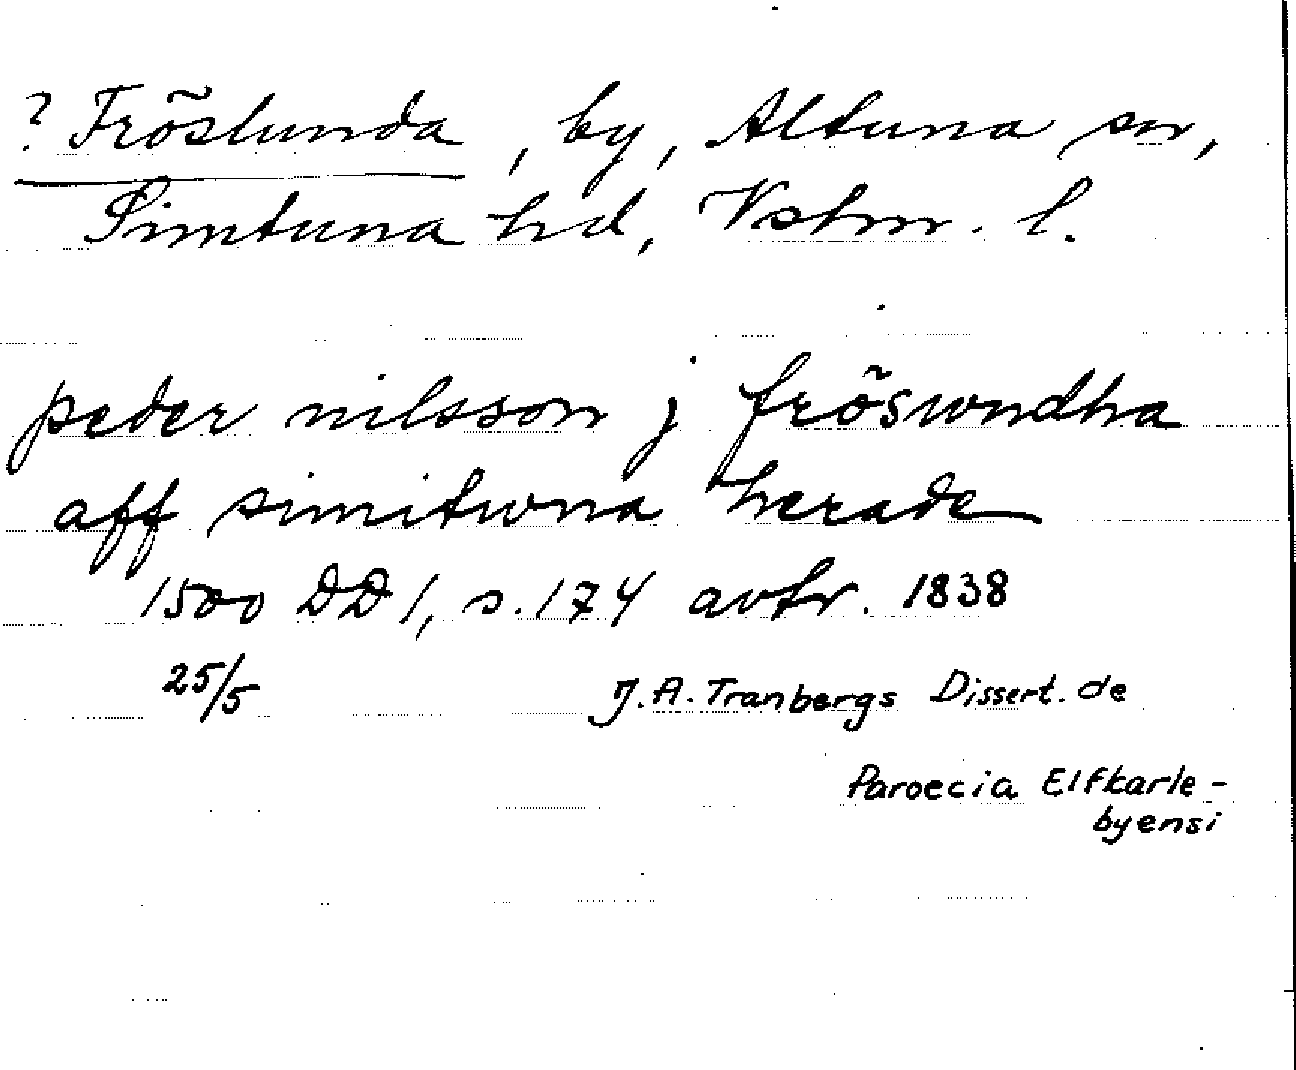 ? Fröslunda, by, Altuna sn,
Simtuna hd, Vstm. l.
peder nilsson j fröswndha
aff simitwna herade
1500 DD 1, s. 174 avtr. 1838
25/5 J. A. Tranbergs Dissert. de
Paroecia Elfkarle-
byensi